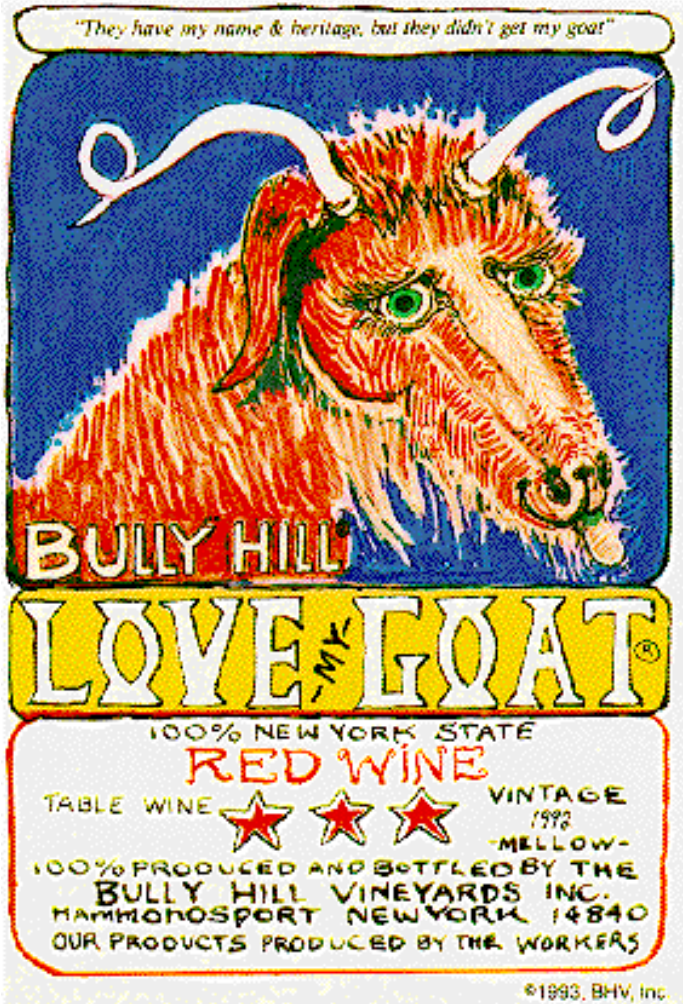 "They have my name & heritage, but they didn't get my goat"
BULLY HILL
LOVE -MY- GOAT ®
100% NEW YORK STATE
RED WINE
TABLE WINE
VINTAGE
1992
-MELLOW-
100% PRODUCED AND BOTTLED BY THE
BULLY HILL VINEYARDS INC.
HAMMONDSPORT NEW YORK 14840
OUR PRODUCTS PRODUCED BY THE WORKERS
©1993, BHV, Inc.